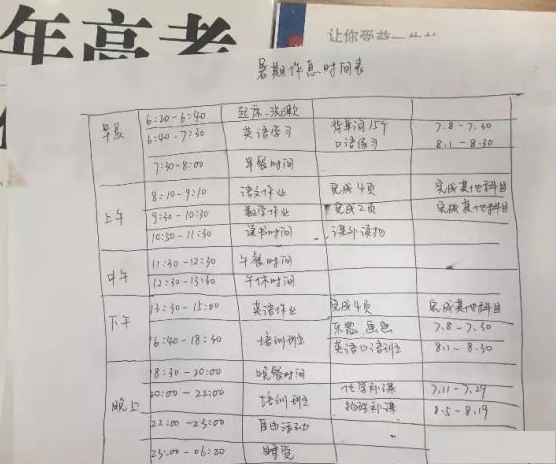 年高考
让你受益一生的
暑期作息时间表
早晨 6:20-6:40 起床、洗漱
6:40-7:30 英语学习 背单词15个 7.8-7.30
口语练习 8.1-8.30
7:30-8:00 早餐时间
上午 8:10-9:10 语文作业 完成4页 完成其他科目
9:30-10:30 数学作业 完成2页 完成其他科目
10:50-11:30 读书时间 课外读物
中午 11:30-12:30 午餐时间
12:30-13:30 午休时间
下午 13:30-15:00 英语作业 完成4页 完成其他科目
16:40-18:30 培训班 乐器、画画 7.8-7.30
英语口语培训 8.1-8.30
晚上 18:30-20:00 晚餐时间
20:00-22:00 培训班 化学补课 7.11-7.29
物理补课 8.5-8.19
22:00-23:00 自由活动
23:00-06:20 睡觉